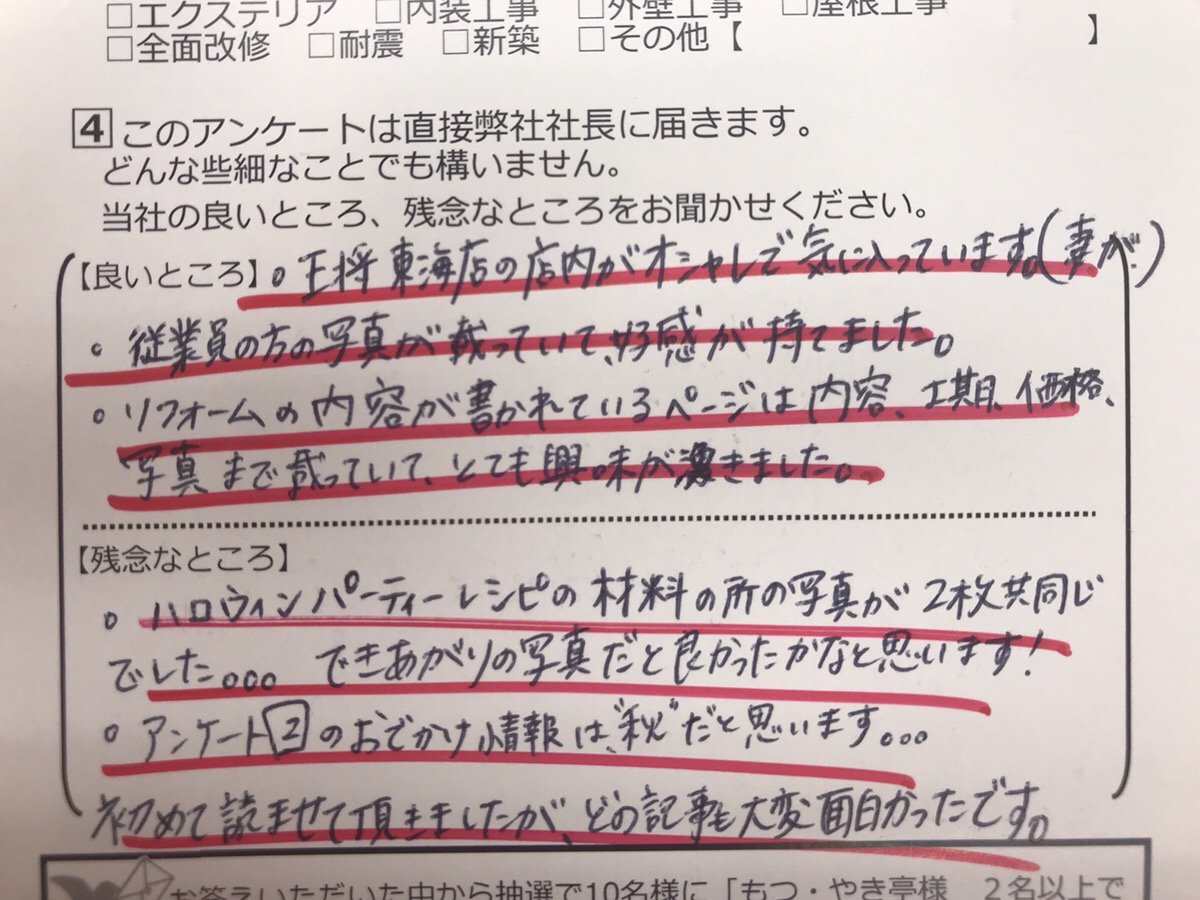 □エクステリア □内装工事 □外壁工事 □屋根工事
□全面改修 □耐震 □新築 □その他【 】
4 このアンケートは直接弊社社長に届きます。
どんな些細なことでも構いません。
当社の良いところ、残念なところをお聞かせください。
【良いところ】。王将東海店の店内がオシャレで気に入っています。(妻が)
。従業員の方の写真が載っていて、好感が持てました。
。リフォームの内容が書かれているページは内容、工期、価格、
写真まで載っていて、とても興味が湧きました。
【残念なところ】
。ハロウィンパーティーレシピの材料の所の写真が2枚共同じ
でした。。。 できあがりの写真だと良かったかなと思います!
。アンケート2のおでかけ情報は、"秋"だと思います。。。
初めて読ませて頂きましたが、どの記事も大変面白かったです。
お答えいただいた中から抽選で10名様に「もつ・やき亭様 2名以上で